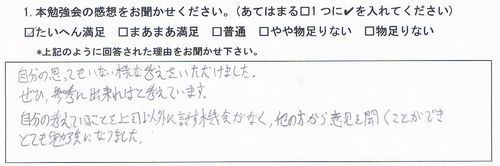 1. 本勉強会の感想をお聞かせください。(あてはまる□1つに✔を入れてください)
☑たいへん満足 □まあまあ満足 □普通 □やや物足りない □物足りない
*上記のように回答された理由をお聞かせ下さい。
自分の思ってもいない様な考えをいただけました。
ぜひ、参考に出来ればと考えています。
自分の考えていることを上司以外に話す機会がなく、他の方から意見を聞くことができ
とても勉強になりました。